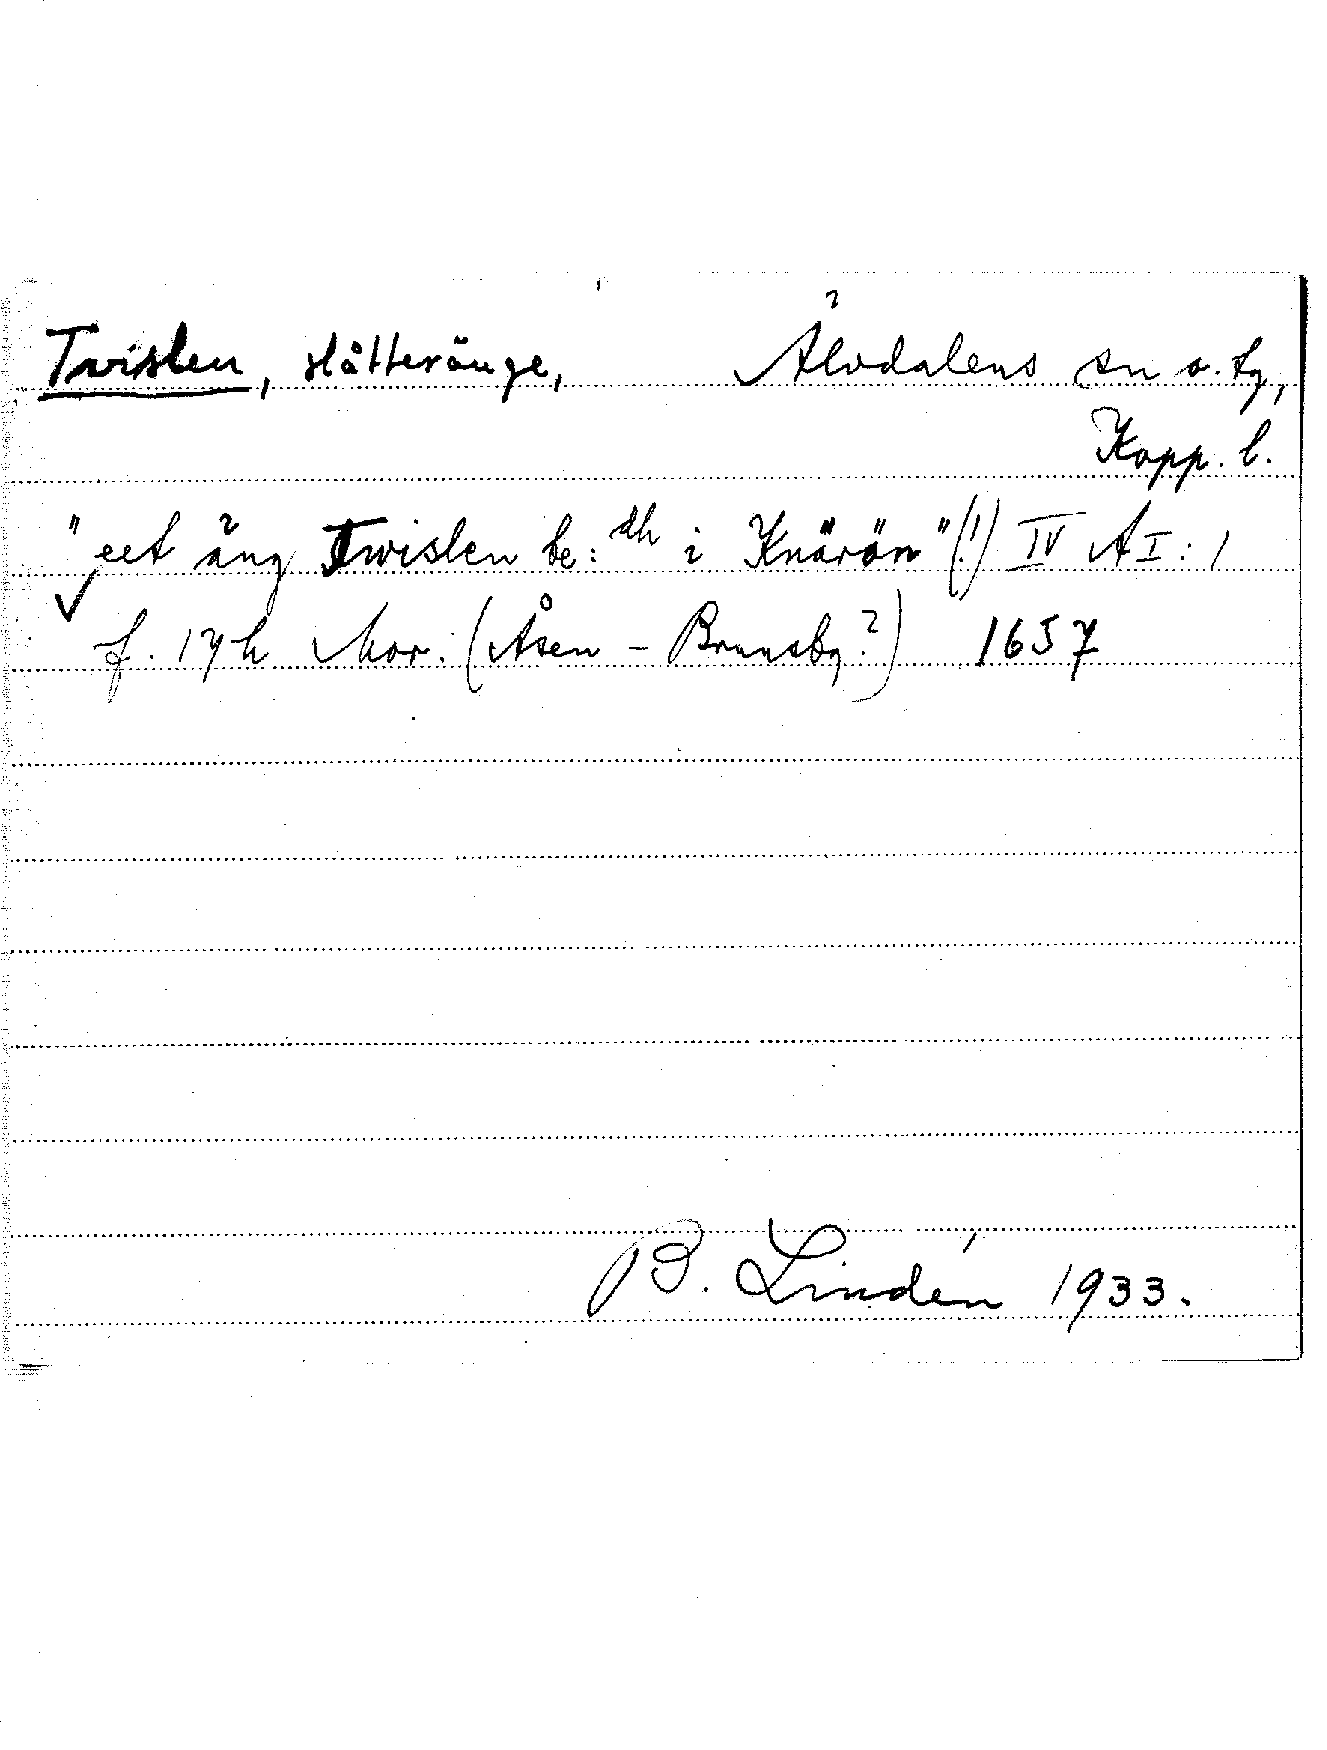 Twislen, slåtteränge, Älvdalens sn o. tg,
Kopp. l.
"eet äng Twislen be:dh i Knärön"(!) IV A I: 1
f. 17h Mor. (Åsen - Brunsbg?) 1657
B. Lindén 1933.